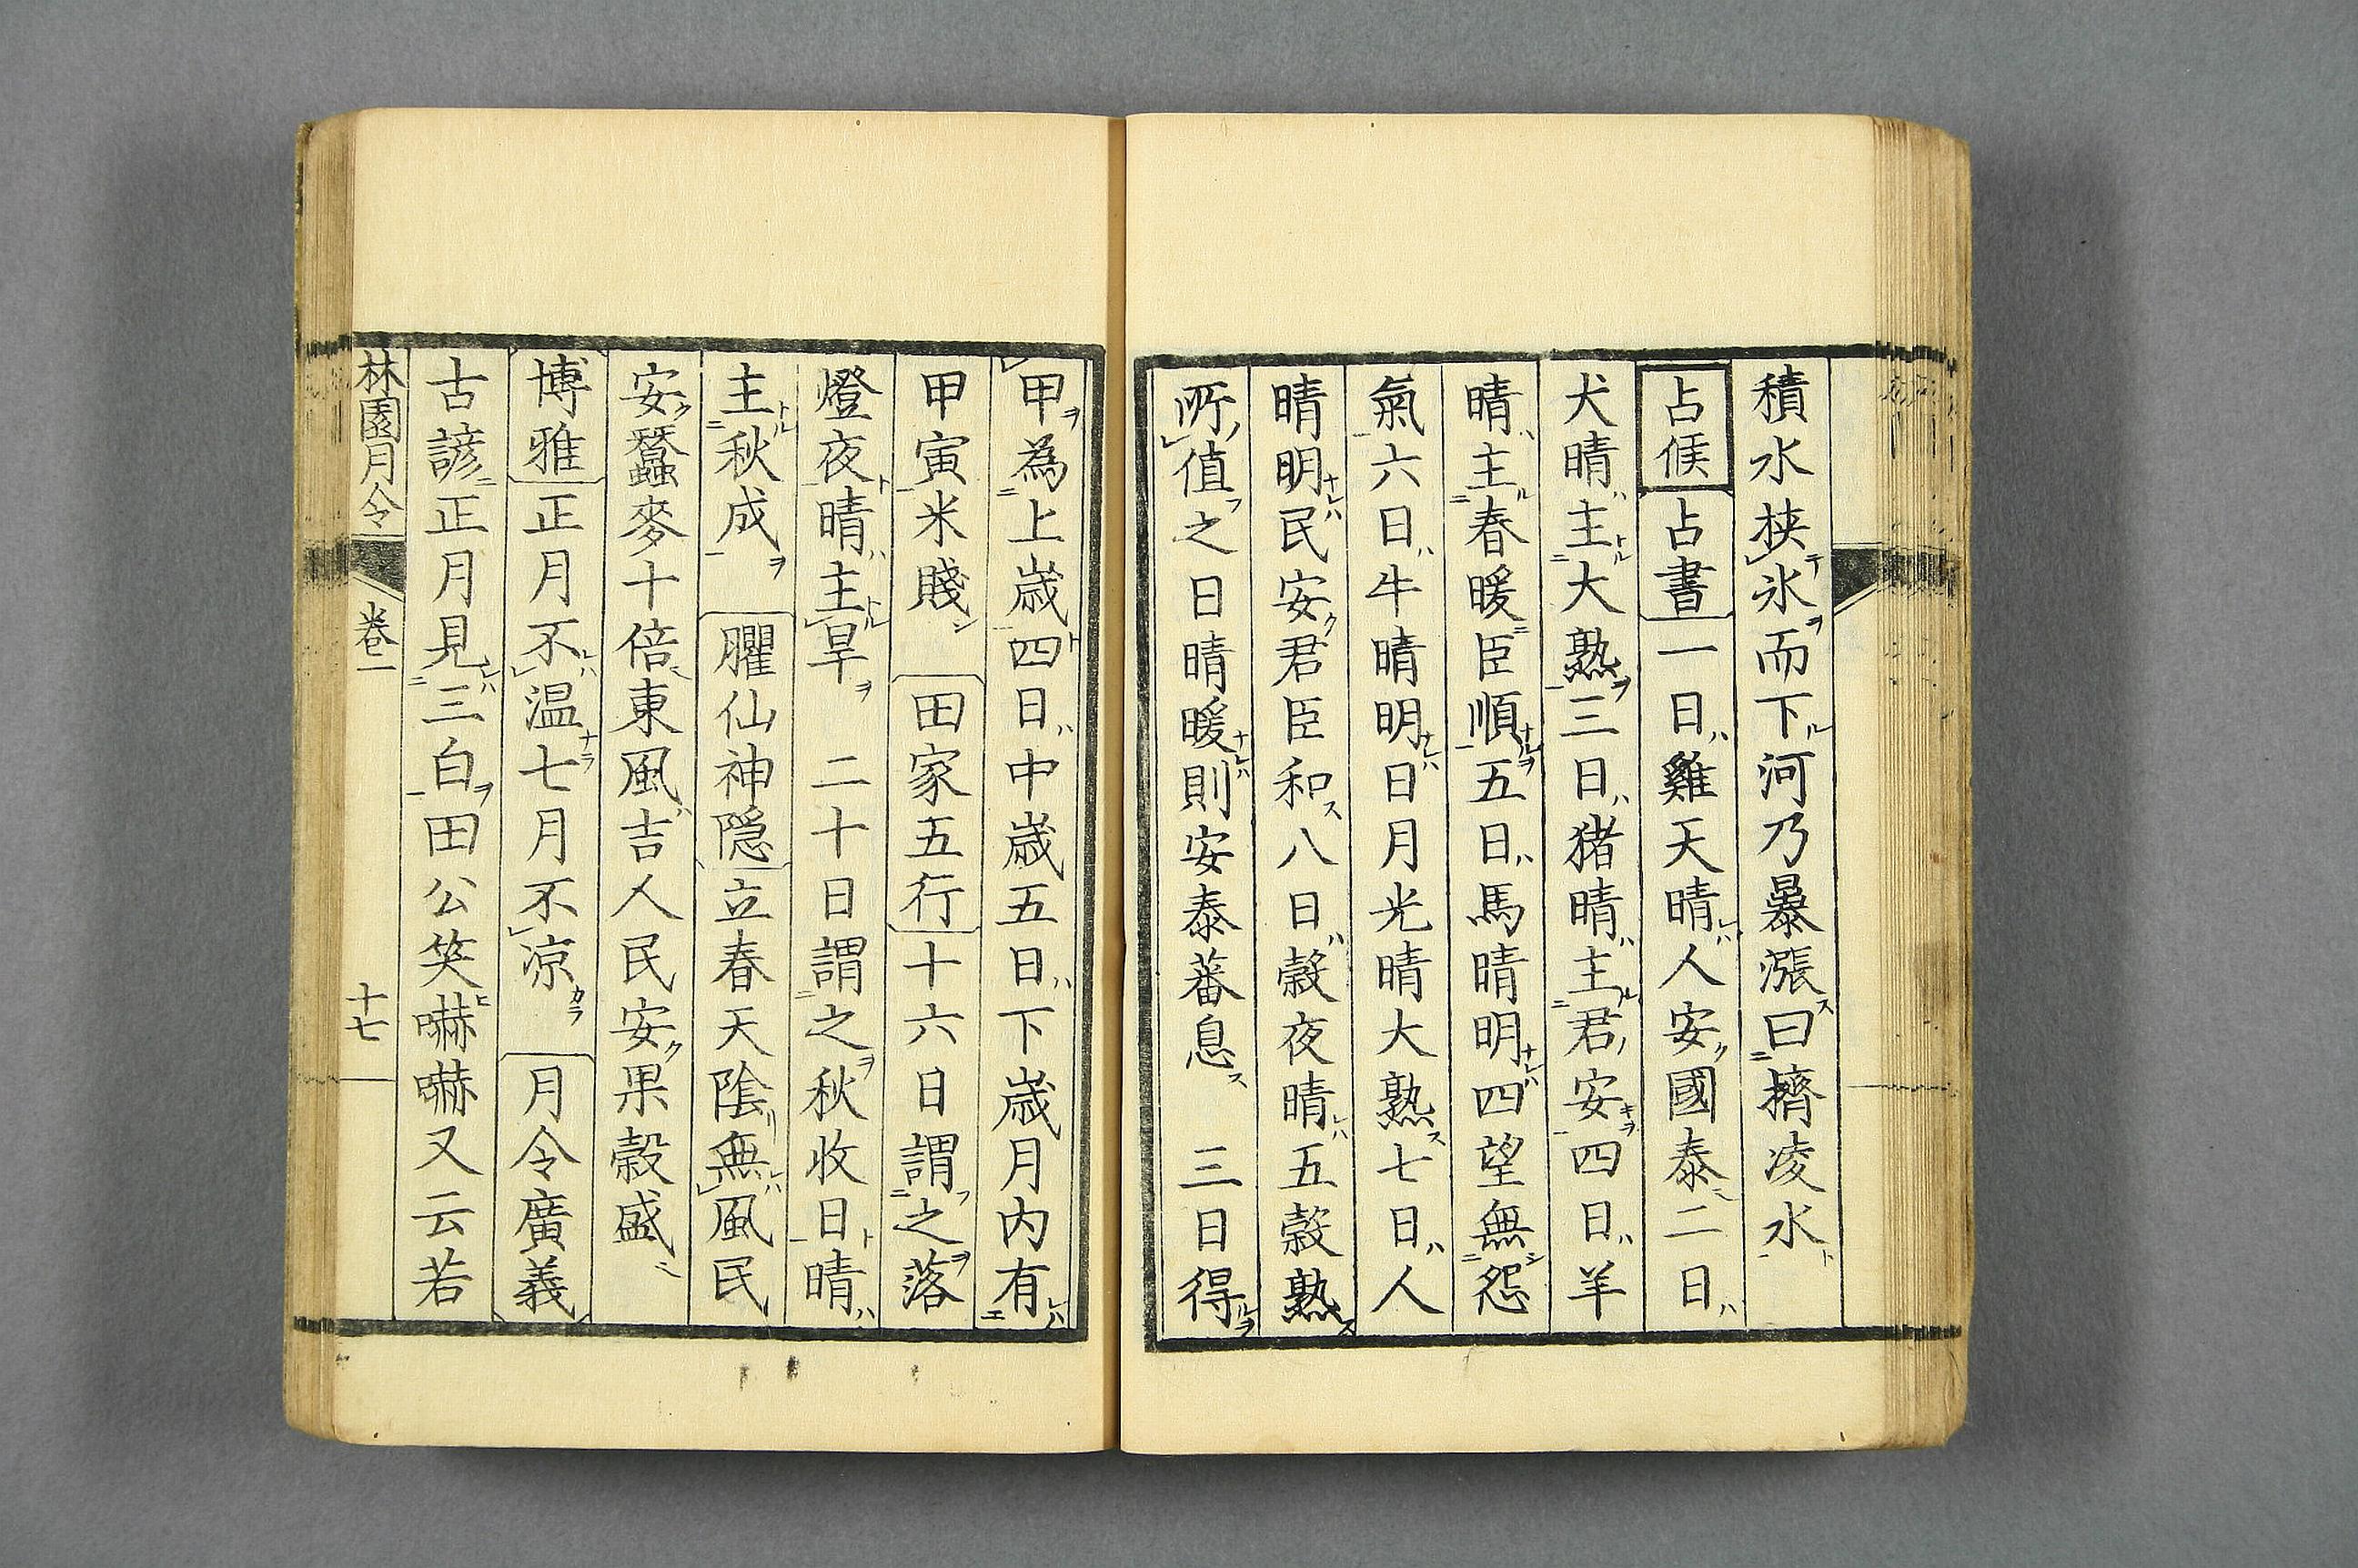 積水挟氷而下河乃暴漲曰擠凌水
占候 占書 一日雞天晴人安國泰二日
犬晴主大熟三日猪晴主君安四日羊
晴主春暖臣順五日馬晴明四望無怨
氣六日牛晴明日月光晴大熟七日人
晴明民安君臣和八日穀夜晴五穀熟
所値之日晴暖則安泰蕃息 三日得
甲為上歳四日中歳五日下歳月内有
甲寅米賤 田家五行 十六日謂之落
燈夜晴主旱 二十日謂之秋收日晴
主秋成 臞仙神隠 立春天陰無風民
安蠶麥十倍東風吉人民安果穀盛
博雅 正月不温七月不凉 月令廣義
古諺正月見三白田公笑嚇嚇又云若
林園月令 卷一 十七